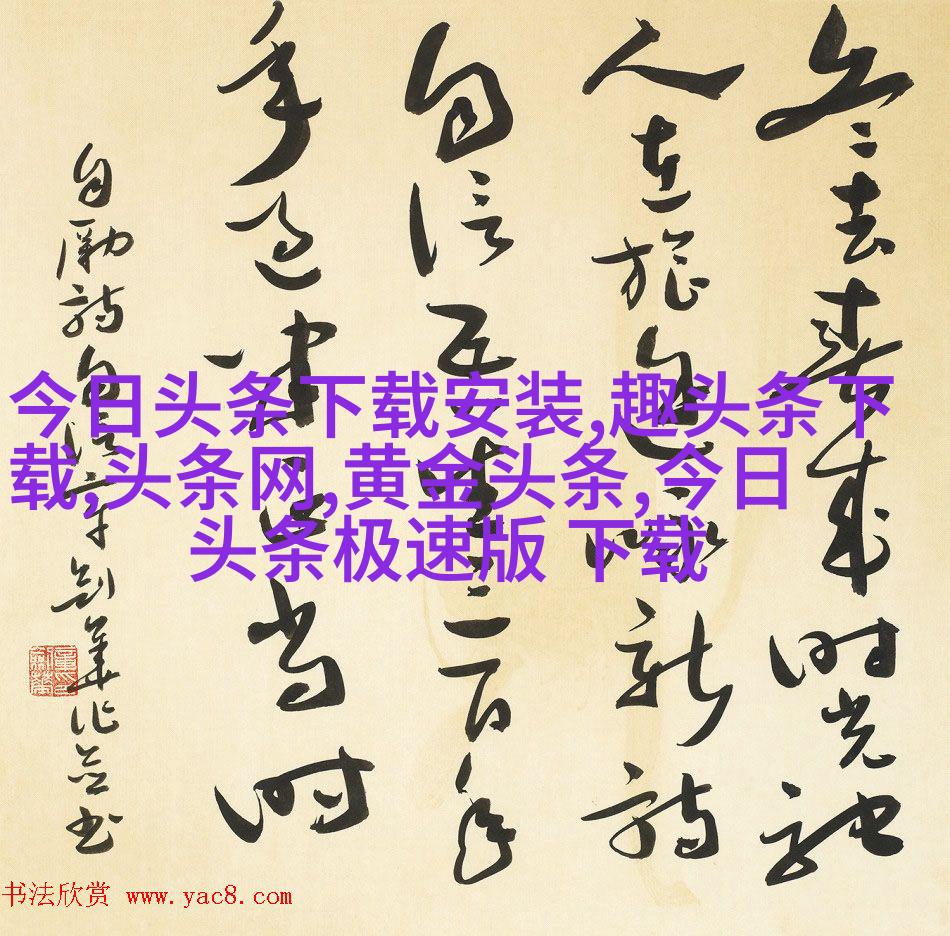 冬去春来时光驰
人在旅途咏新诗
自信生二百年
年过半当时
自励诗 剑华作并书
今日头条下载安装,趣头条下
载,头条网,黄金头条,今日
头条极速版 下载
书法欣赏 www.yac8.com